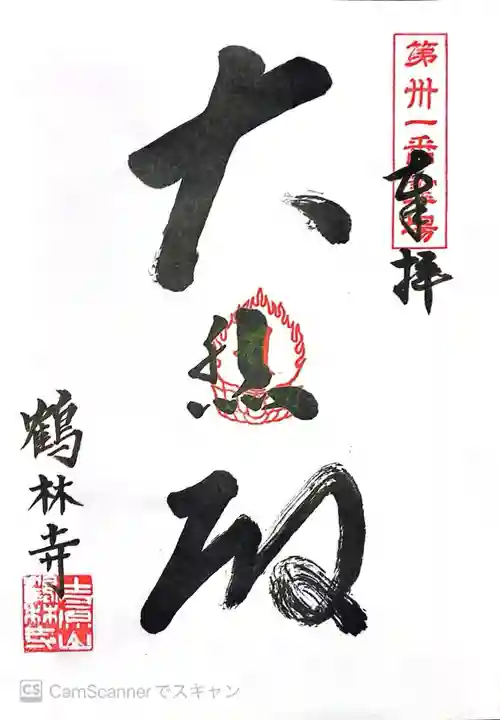 第卅一番霊場
奉拝
大悲殿
鶴林寺
CS CamScannerでスキャン